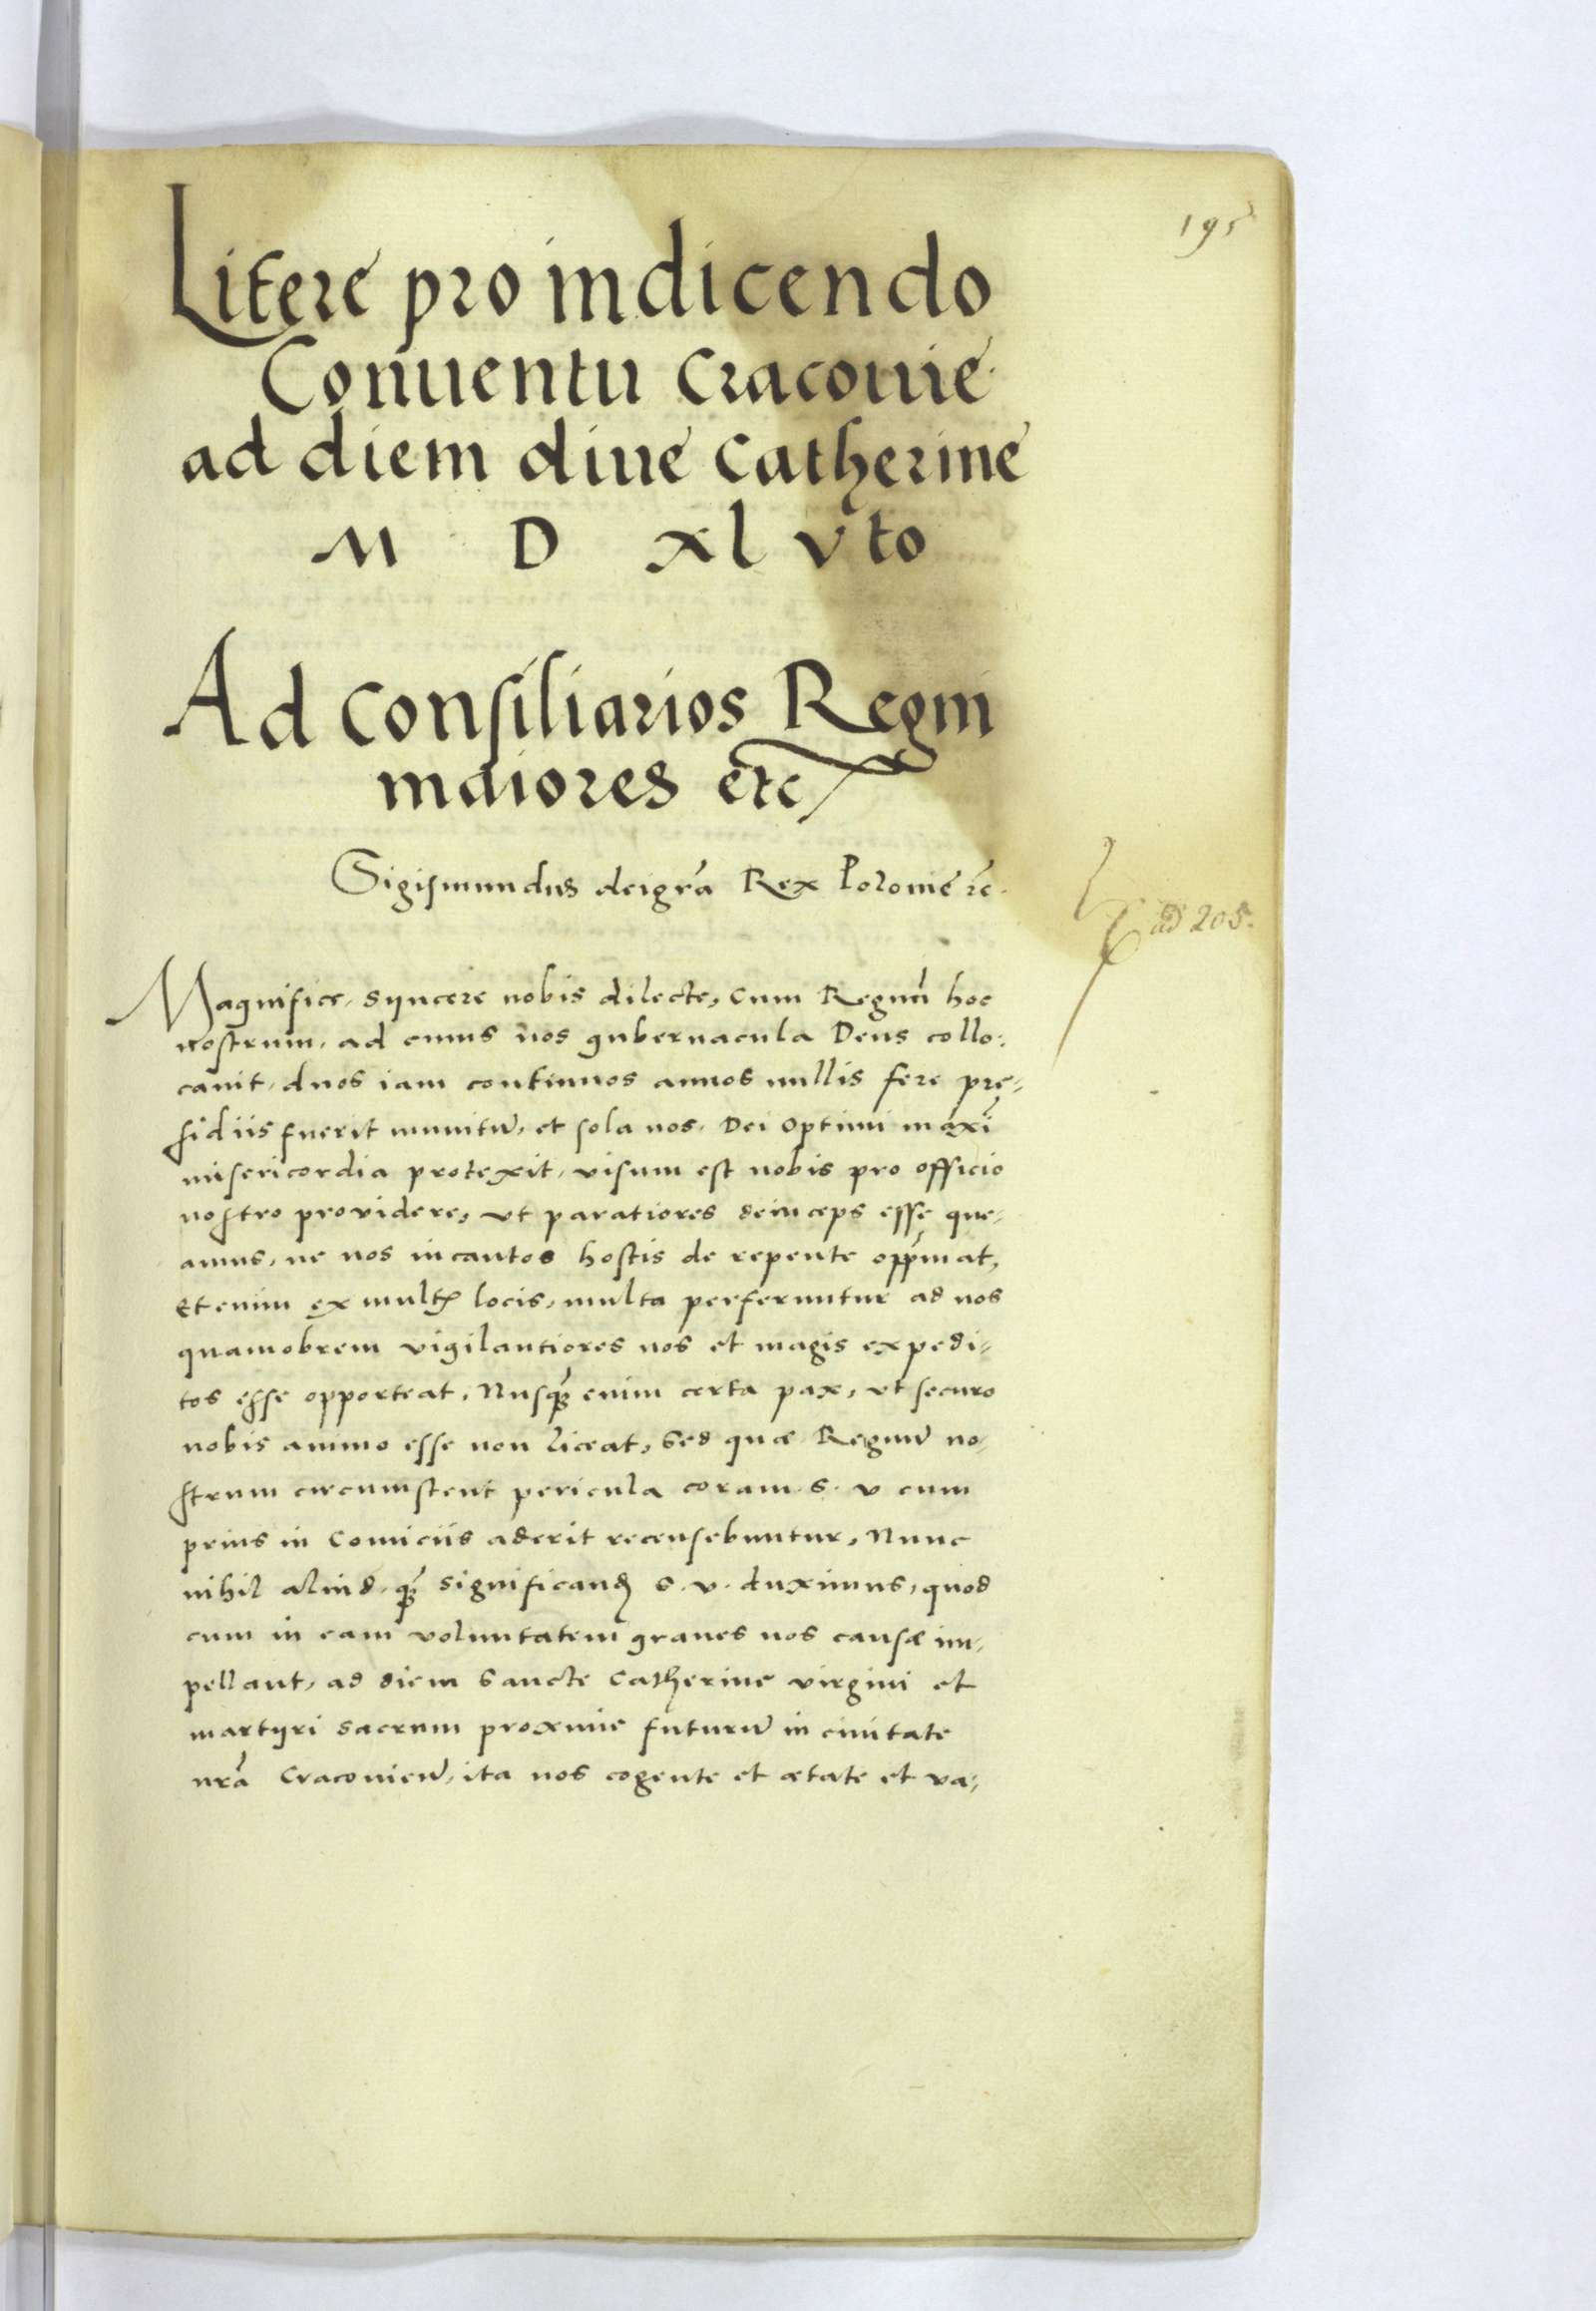 195
Litere pro indicendo
Conuentu Cracouie
ad diem diue Catherine
M D xl vto
Ad Consiliarios Regni
maiores etc
Sigismundus dei grã Rex Polonie rc̃.
ad 205.
Magnifice, syncere nobis dilecte, Cum Regnũ hoc
nostrum, ad cuius nos gubernacula Deus collo-
cauit, duos iam continuos annos nullis fere pre-
sidiis fuerit munitũ, et sola nos, Dei Optimi maxĩ
misericordia protexit, visum est nobis pro officio
nostro providere, vt paratiores deinceps esse que-
amus, ne nos incautos hostis de repente opp̃mat,
Etenim ex mult locis, multa perferuntur ad nos
quamobrem vigilantiores nos et magis expedi-
tos esse opporteat, Nusq̃ enim certa pax, vt securo
nobis animo esse non liceat, Sed quæ Regnũ no-
strum circumstent pericula coram S. V cum
prius in Comiciis aderit recensebuntur, Nunc
nihil aliud, q̃ significand S. V. duximus, quod
cum in eam voluntatem graues nos causæ im-
pellant, ad diem Sancte Catherine virgini et
martyri sacrum proxime futurũ in ciuitate
nrã Cracouien̄, ita nos cogente et ætate et va-